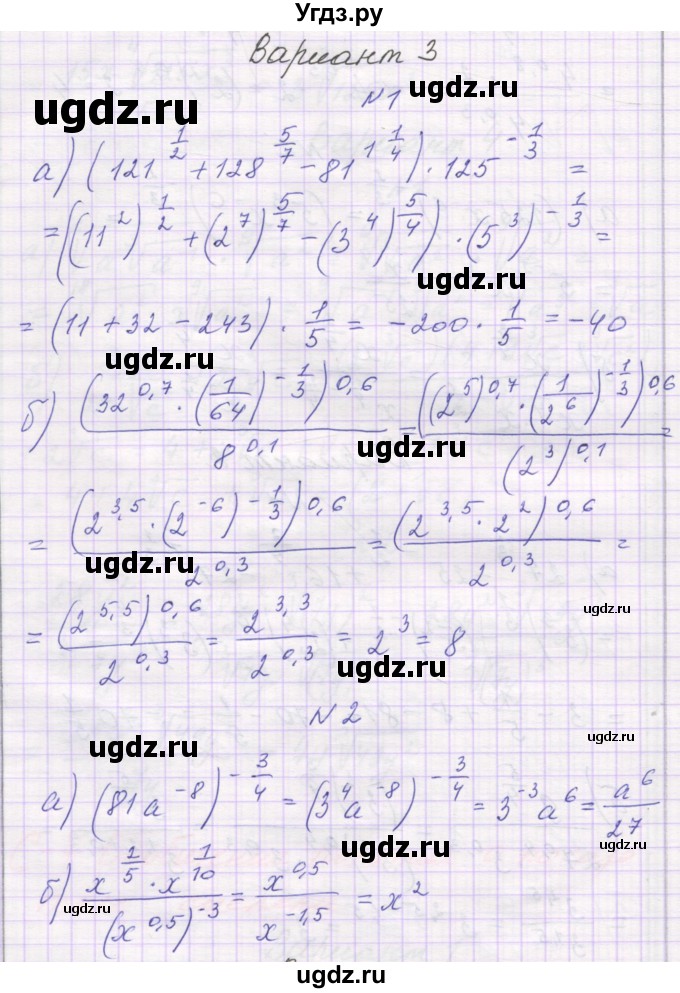 Угдз.ру
Вариант 3
ugdz.ru
№1
ugdz.ru
а) (121^(1/2) + 128^(5/7) - 81^(1 1/4)) · 125^(-1/3) =
= ((11^2)^(1/2) + (2^7)^(5/7) - (3^4)^(5/4)) · (5^3)^(-1/3) =
ugdz.ru
= (11 + 32 - 243) · 1/5 = -200 · 1/5 = -40
ugdz.ru
б) (32^0,7 · (1/64)^(-1/3))^0,6 / 8^0,1 = ((2^5)^0,7 · (1/2^6)^(-1/3))^0,6 / (2^3)^0,1 =
ugdz.ru
= (2^3,5 · (2^-6)^(-1/3))^0,6 / 2^0,3 = (2^3,5 · 2^2)^0,6 / 2^0,3 =
ugdz.ru
ugdz.ru
= (2^5,5)^0,6 / 2^0,3 = 2^3,3 / 2^0,3 = 2^3 = 8
ugdz.ru
№2
ugdz.ru
ugdz.ru
а) (81a^-8)^(-3/4) = (3^4 a^-8)^(-3/4) = 3^-3 a^6 = a^6 / 27
ugdz.ru
б) x^(2/5) · x^(1/10) / (x^0,5)^-3 = x^0,5 / x^-1,5 = x^2
ugdz.ru
ugdz.ru
ugdz.ru